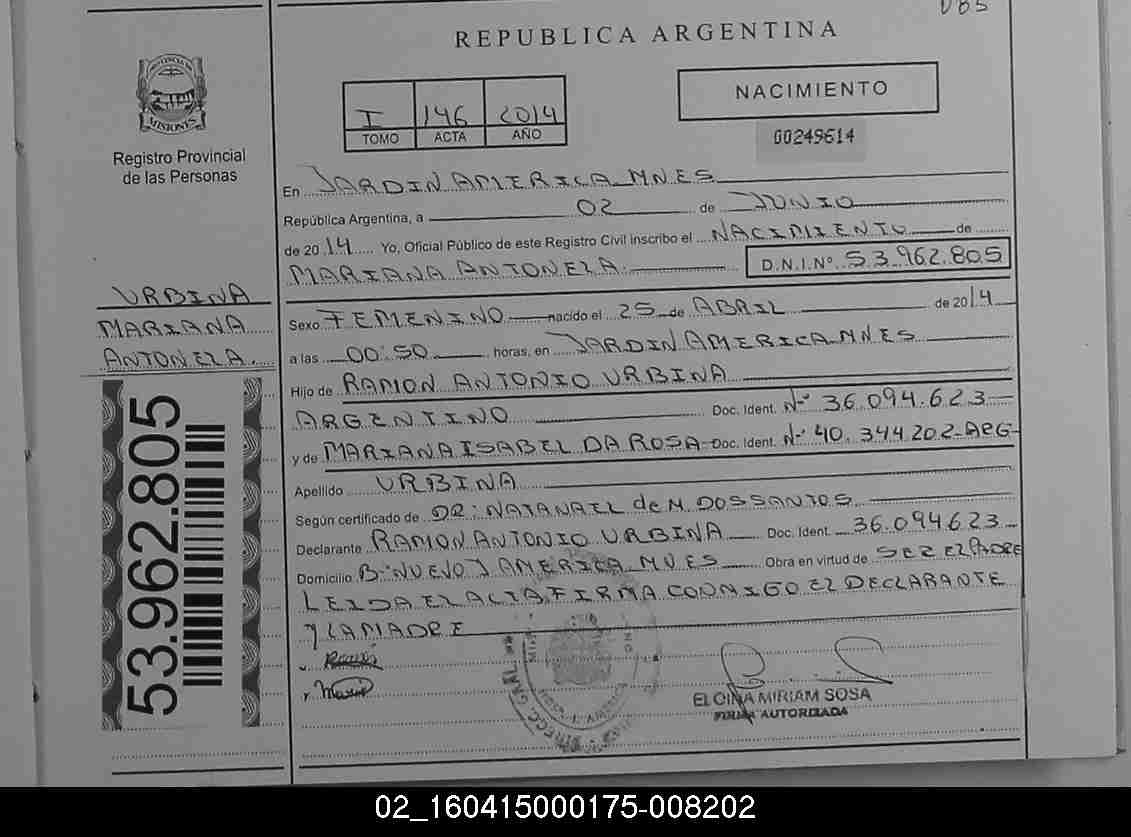 REPUBLICA ARGENTINA
PROVINCIA DE
MISIONES
Registro Provincial
de las Personas
I 146 2014
TOMO ACTA AÑO
NACIMIENTO
00249614
En JARDIN AMERICA MNES
República Argentina, a 02 de JUNIO
de 2014 Yo, Oficial Público de este Registro Civil inscribo el NACIMIENTO de
MARIANA ANTONELA D.N.I.Nº 53.962.805
URBINA
MARIANA
ANTONELA.
Sexo FEMENINO nacido el 25 de ABRIL de 2014
a las 00:50 horas, en JARDIN AMERICA MNES
Hijo de RAMON ANTONIO URBINA
ARGENTINO Doc. Ident. Nº 36.094.623
y de MARIANA ISABEL DA ROSA Doc. Ident. Nº 40.344.202-ARG-
Apellido URBINA
Según certificado de DR: NATANAEL de M. DOS SANTOS
Declarante RAMON ANTONIO URBINA Doc. Ident. 36.094.623
Domicilio Bº NUEVO J AMERICA MNES Obra en virtud de SER EL PADRE
LEIDA EL ACTA FIRMA CONMIGO EL DECLARANTE
Y LA MADRE
53.962.805
ELCINA MIRIAM SOSA
FIRMA AUTORIZADA
02_160415000175-008202